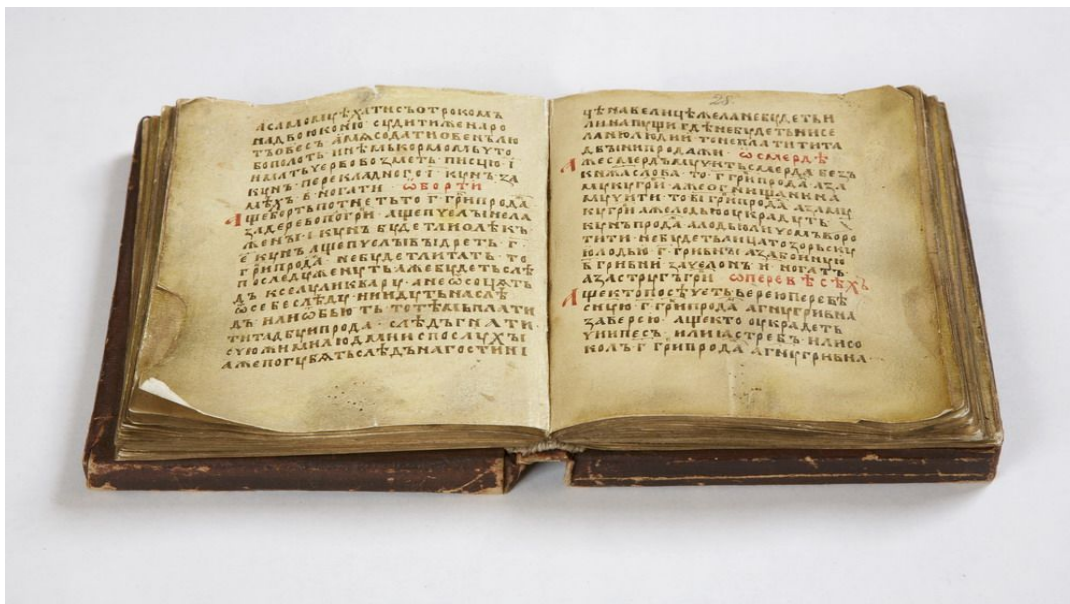 АСАМОМУѢХАТИСЪОТРОКОМЪ
НАДВОЮКОНЮ·СУДИТИЖЕНАРО
ТЪОВЕСЪ·АМѦСОДАТИОВЕНЪЛЮ
БОПОЛОТЬ·ИНѢМЬКОРМОМЬЧТО
ИМАТЬЧЕРЕВОВОЗМЕТЬ·ПИСЦЮ·І
КУНЪ·ПЕРЕКЛАДНОГО·Е·КУНЪ·ЗА
МѢХЪ·В·НОГАТИ· ѠБОРТИ
АЩЕБОРТЬПОТНЕТЬТО·Г·ГРИПРОДА
ЗАДЕРЕВОПОГРИ·АЩЕПЧЕЛЫ
ЖЕНЫ·І·КУНЪ БУДЕТЛИОЛѢКЪ·
Е·КУНЪ АЩЕПЧЕЛЫВЫДРЕТЬ·Г·
ГРИПРОДА· НЕБУДЕТЛИТАТЬ·ТО
ПОСЛЕДУЖЕНУТЬАЖЕБУДЕТЬСЛѢ
ДЪ КСЕЛУИЛИКВАРУ·АНЕѠСОЧѦТЬ
ѠСЕБЕСЛѢДУ·НИИДУТЬНАСЛѢ
ДЪ·ИЛИѠБЬЮТЬ·ТОТѢМЪПЛАТИ
ТИТАДБУИПРОДА·СЛѢДЪГНАТИ·
СЧЮЖИМИЛЮДМИИСПОСЛУХЫ
АЖЕПОГУБѦТЬСЛѢДЪНАГОСТИНІ
28.
ЦѢНАВЕЛИЦѢЖЕЛАНЕБУДЕТЬИ
ЛИНАПУЩИГДѢНЕБУДЕТЬНИСЕ
ЛАНИЛЮДИИ·ТОНЕПЛАТИТИТА
ДБЫНИПРОДАЖИ· ѠСМЕРДѢ
АЖЕСМЕРДЪМУЧИТЬСМЕРДАБЕЗЪ
КНѦЖАСЛОВА·ТО·Г·ГРИПРОДА·АЗА
МУКУГРИ·АЖЕОГНИЩАНИНА
МУЧИТИ·ТОВІГРИПРОДА·АЗАМУ
КУГРИ·АЖЕЛОДЬЮОУКРАДУТЬ·
КУНЪПРОДА·АЛОДЬЮЛИЧОМЪВОРО
ТИТИ·НЕБУДЕТЬЛИЦАТОЗОРЬСКУ
ЮЛОДЬЮ·Г·ГРИВНЫ·АЗАБОИНУЮ
В·ГРИВНИ·ЗАЧЕЛОНЪ·И·НОГАТЪ·
АЗАСТРУГЪГРИ· ѠПЕРЕВѢСѢХЪ
АЩЕКТОПОСѢЧЕТЬВЕРЕЮПЕРЕВѢ
СНУЮ·Г·ГРИПРОДА·АГНУГРИВНА
ЗАВЕРЕЮ·АЩЕКТО ОУКРАДЕТЬ
ЧИИПЕСЪ·ИЛИЯСТРЕБЪ·ИЛИСО
КОЛЪ·Г·ГРИПРОДА·АГНУГРИВНА·